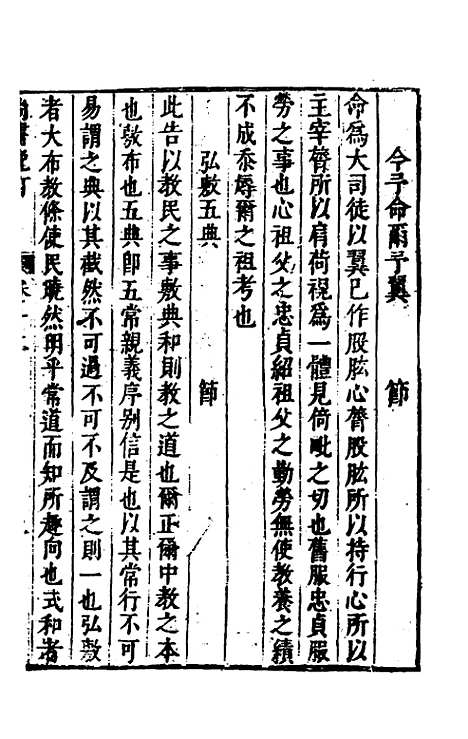 今予命爾予翼　節
命爲大司徒以翼已作股肱心膂股肱所以持行心所以
主宰膂所以肩荷視爲一體見倚毗之切也舊服忠貞服
勞之事也心祖父之忠貞紹祖父之勤勞無使教養之績
不成忝辱爾之祖考也
弘敷五典　節
此告以教民之事敷典和則教之道也爾正爾中教之本
也敷布也五典卽五常親義序别信是也以其常行不可
易謂之典以其截然不可過不可不及謂之則一也弘敷
者大布教條使民曉然明乎常道而知所趨向也式和者
尚書